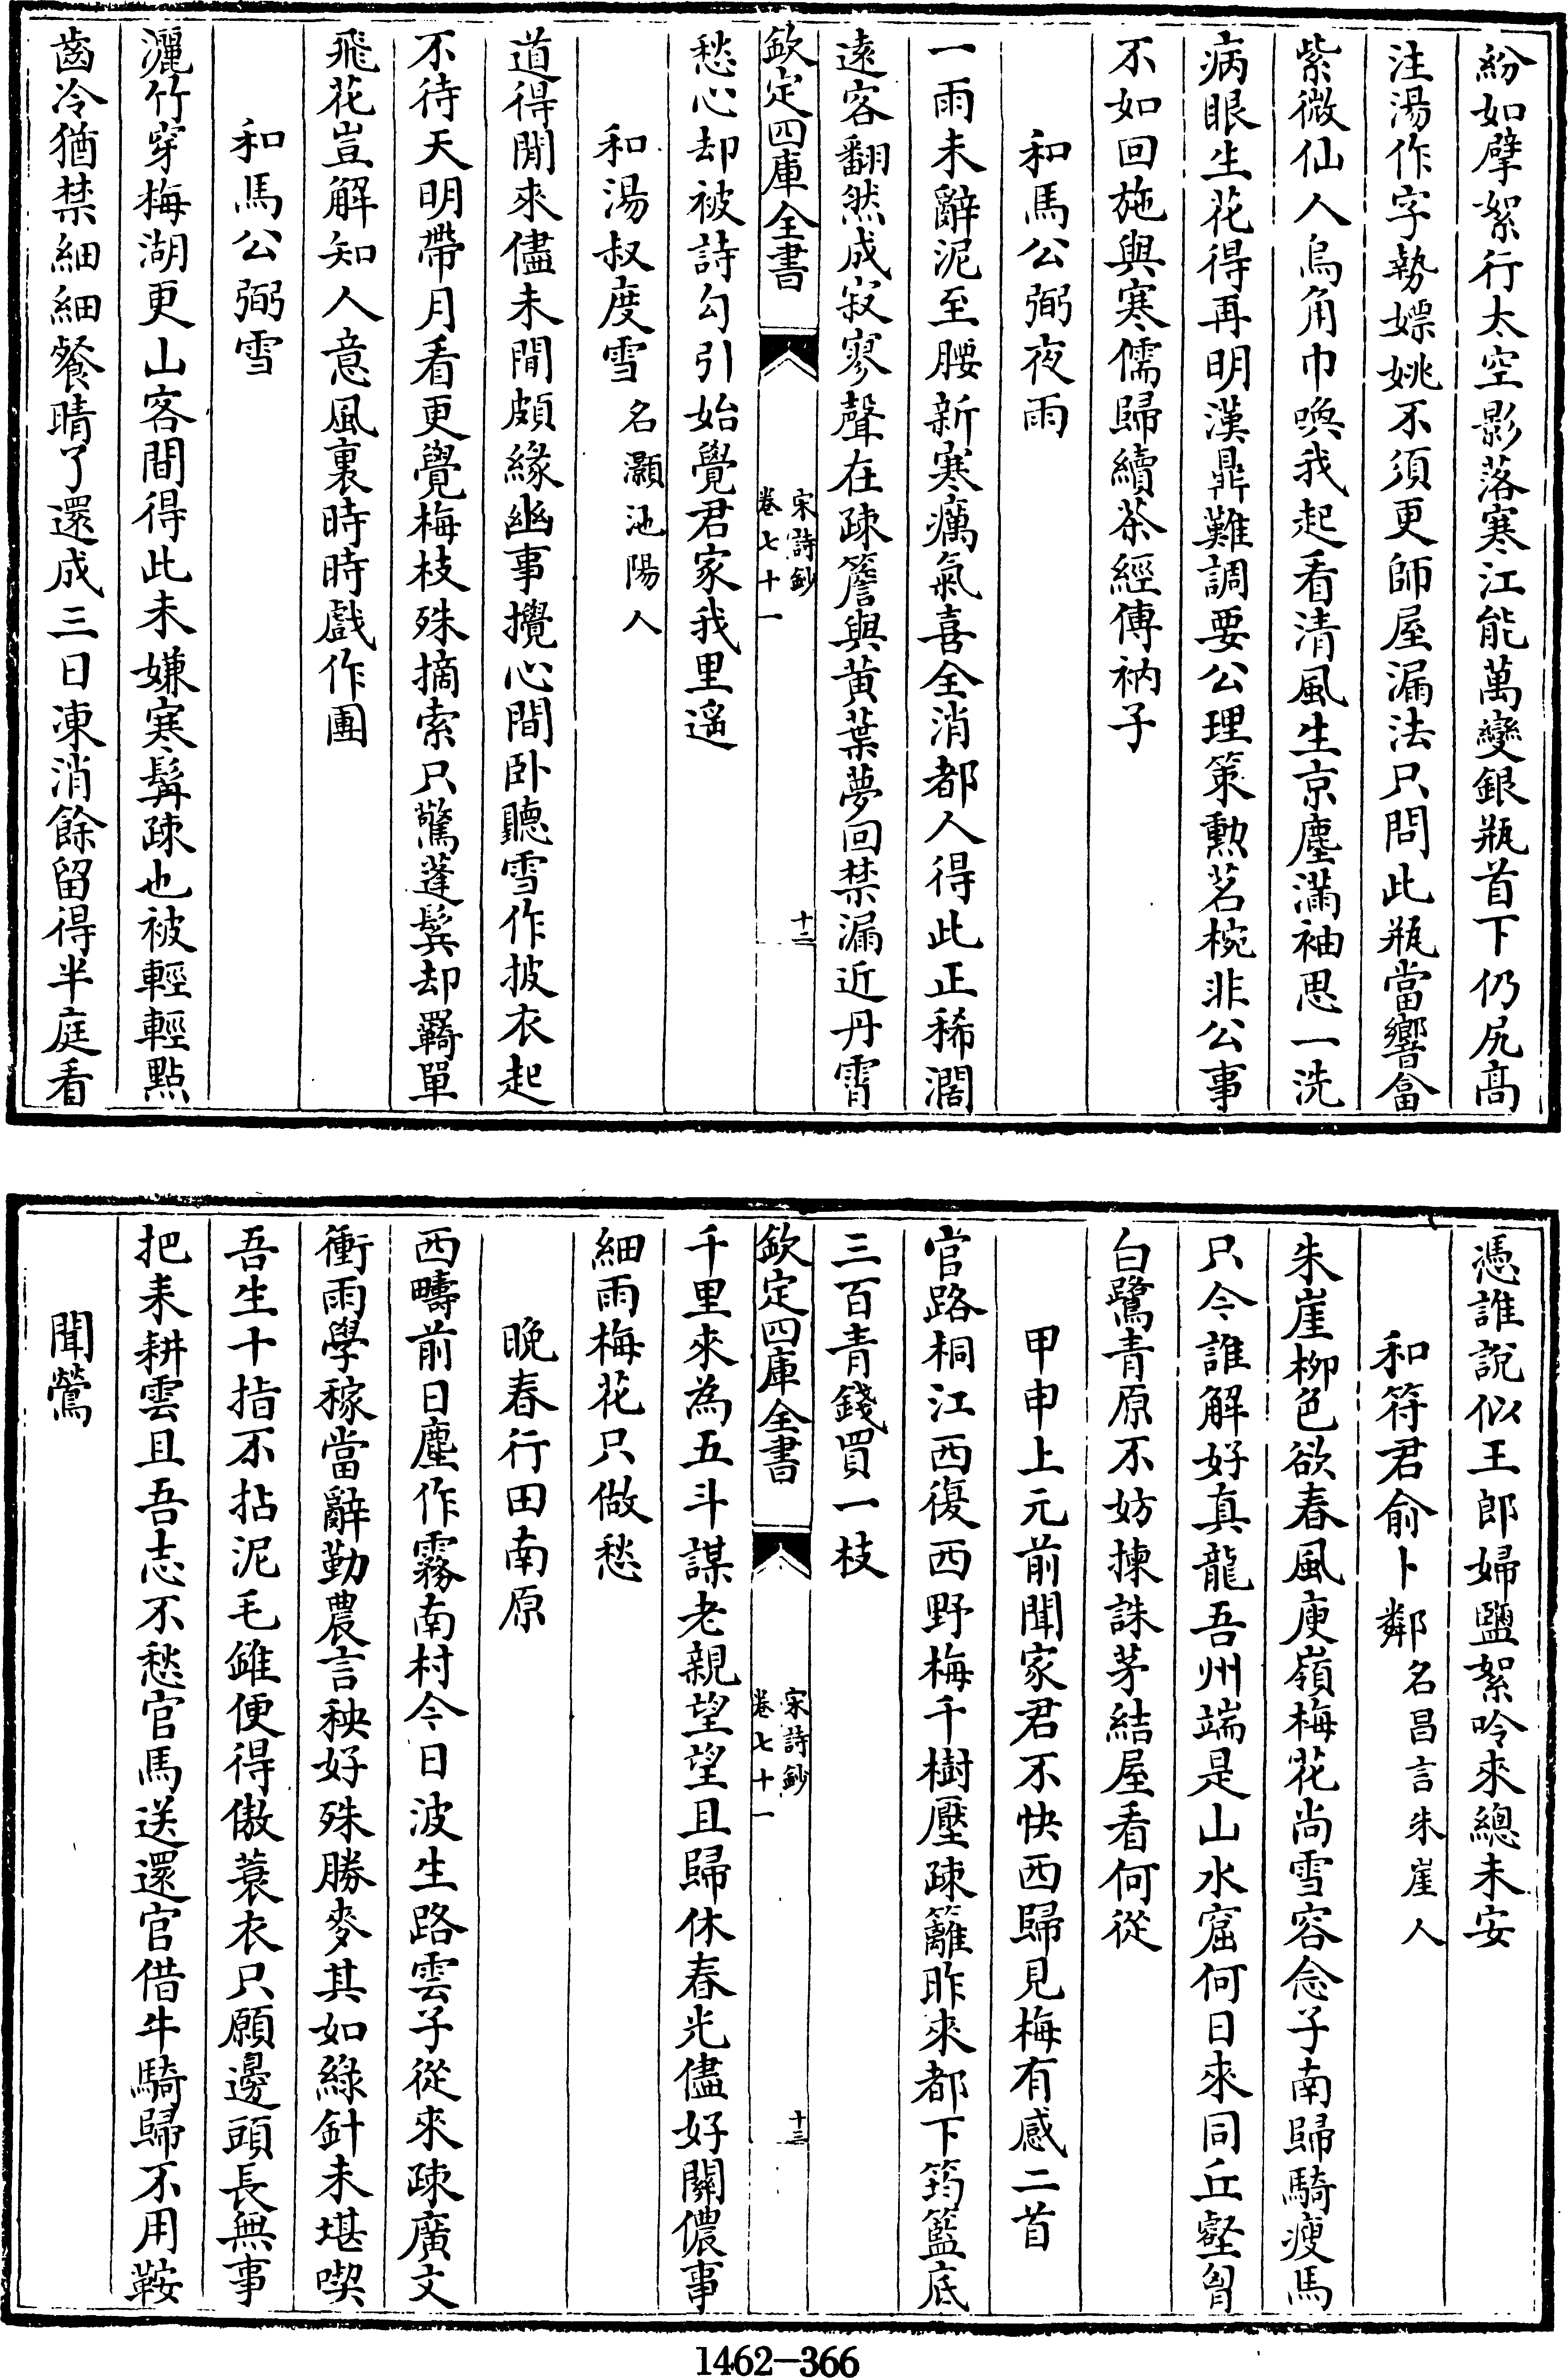 紛如擘絮行太空影落寒江能萬變銀瓶首下仍尻高
注湯作字勢嫖姚不須更師屋漏法只問此瓶當響畣
紫微仙人烏角巾喚我起看清風生京塵滿袖思一洗
病眼生花得再明漢鼎難調要公理策勲茗椀非公事
不如回施與寒儒歸續茶經傳衲子
和馬公弼夜雨
一雨未辭泥至腰新寒癘氣喜全消都人得此正稀濶
遠客翻然成寂寥聲在疎簷與黄葉夢回禁漏近丹霄
欽定四庫全書
宋詩鈔
卷七十一
十二
愁心却被詩勾引始覺君家我里遥
和湯叔度雪名灝池陽人
道得閒來儘未閒頗緣幽事攪心間卧聽雪作披衣起
不待天明帶月看更覺梅枝殊摘索只驚蓬鬂却羇單
飛花豈解知人意風裏時時戲作團
和馬公弼雪
灑竹穿梅湖更山客間得此未嫌寒髯疎也被輕輕點
齒冷猶禁細細餐晴了還成三日凍消餘留得半庭看
憑誰說似王郎婦鹽絮吟來總未安
和符君俞卜鄰名昌言朱崖人
朱崖柳色欲春風庾嶺梅花尚雪容念子南歸騎瘦馬
只今誰解好真龍吾州端是山水窟何日來同丘壑胷
白鷺青原不妨揀誅茅結屋看何從
甲申上元前聞家君不快西歸見梅有感二首
官路桐江西復西野梅千樹壓疎籬昨來都下筠籃底
三百青錢買一枝
欽定四庫全書
宋詩鈔
卷七十一
十三
千里來為五斗謀老親望望且歸休春光儘好關儂事
細雨梅花只做愁
晚春行田南原
西疇前日塵作霧南村今日波生路雲子從來疎廣文
衝雨學稼當辭勤農言秧好殊勝麥其如綠針未堪喫
吾生十指不拈泥毛錐便得傲蓑衣只願邊頭長無事
把耒耕雲且吾志不愁官馬送還官借牛騎歸不用鞍
聞鶯
1462-366